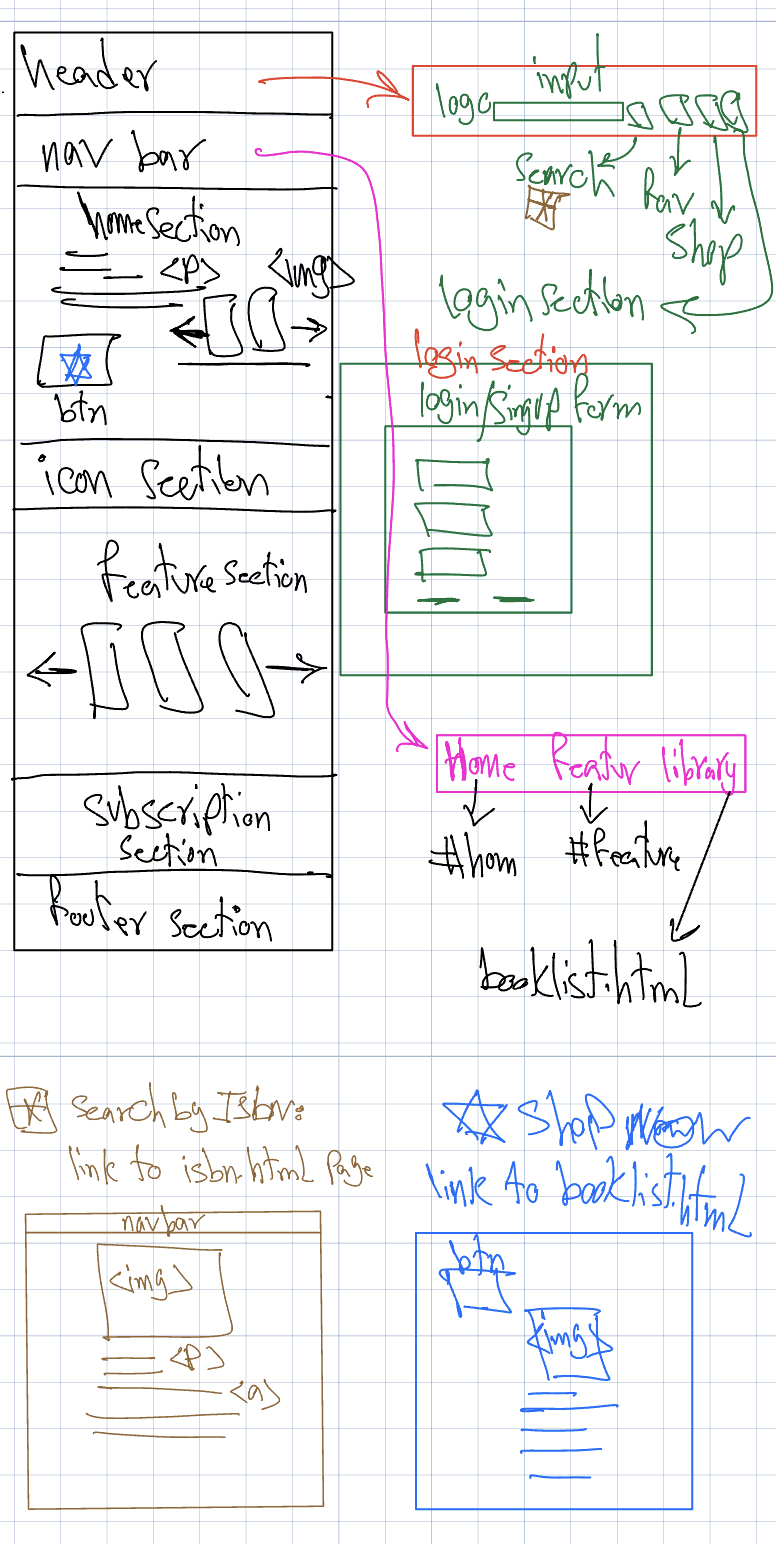 header
nav bar
home section
<p>
<img>
btn
icon section
feature section
subscription
section
footer section
input
logo
search
fav
shop
login section
login section
login/singup form
Home Featur library
#hom #feature
booklist.html
Search by Isbn:
link to isbn.html page
navbar
<img>
<p>
<a>
shop now
link to booklist.html
btn
<img>